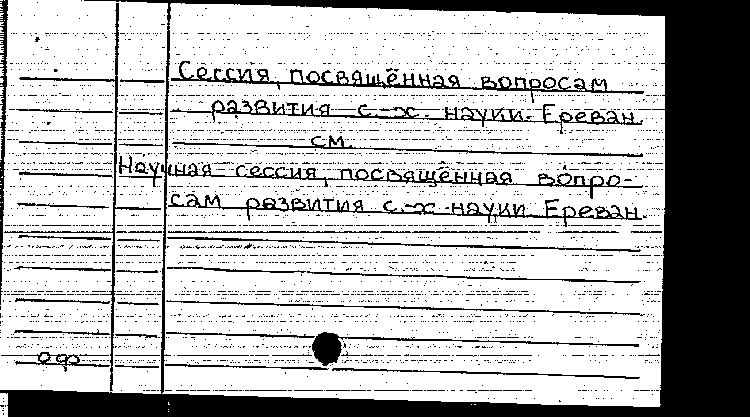 Сессия, посвящённая вопросам
развития с.-х. науки. Ереван.
см.
Научная сессия, посвящённая вопро-
сам развития с.-х. науки. Ереван.
оф